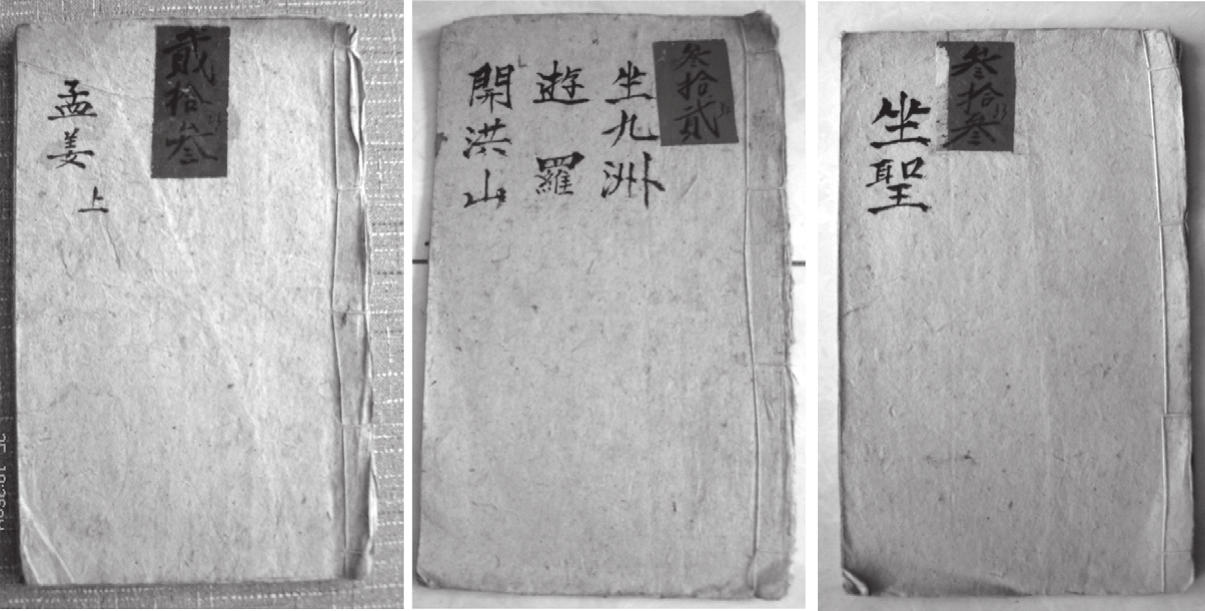 貳拾叁
孟姜
上
叁拾貳
坐九洲
遊羅
開洪山
叁拾叁
坐聖